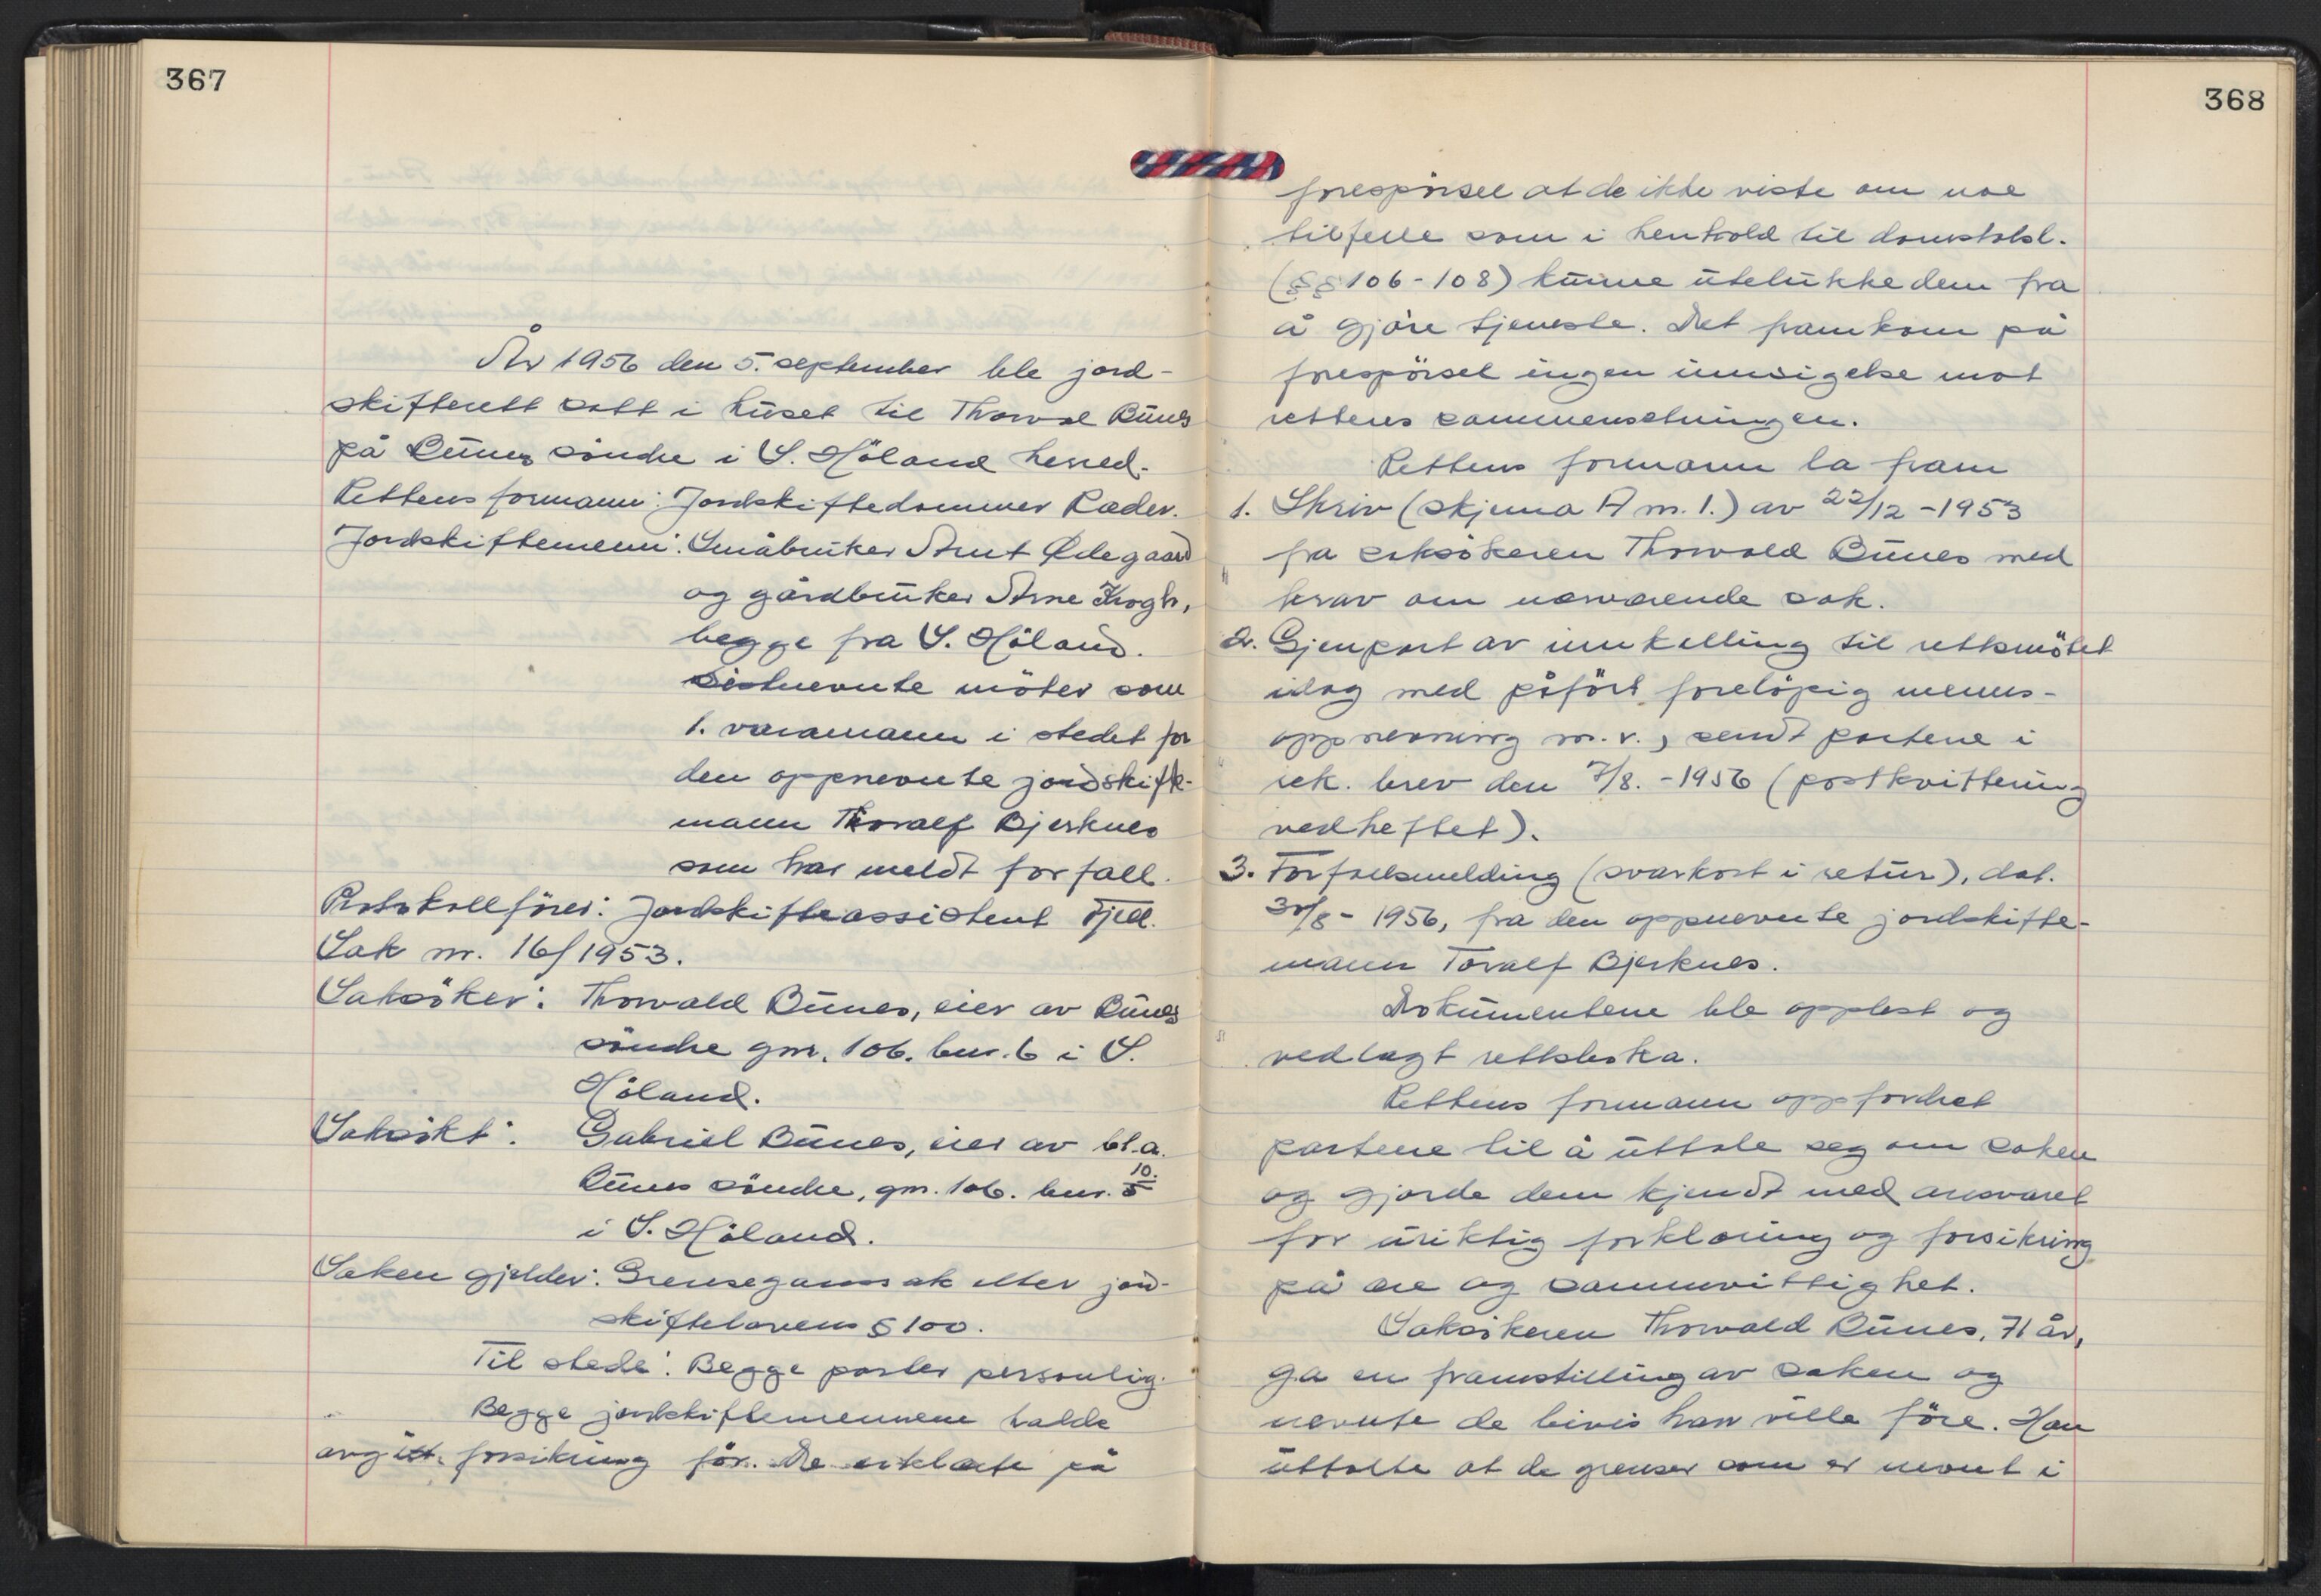 367
År 1956 den 5. september ble jord-
skifterett satt i huset til Thorval Bunes
på Bunes söndre i S. Höland herred.
Rettens formann: Jordskiftedommer Ræder.
Jordskiftemenn: Småbruker Arnt Ødegaard
og gårdbruker Arne Krogh,
begge fra S. Höland.
Sistnevnte möter som
1. varamann i stedet for
den oppnevnte jordskifte-
mann Thoralf Bjerknes
som har meldt forfall.
Protokollförer: Jordskifteassistent Fjell.
Sak nr. 16/1953.
Saksöker: Thorvald Bunes, eier av Bunes
söndre gnr. 106. bnr. 6 i S.
Höland.
Saksökt: Gabriel Bunes, eier av bl.a.
Bunes söndre, gnr. 106. bnr. 5 10.
i S. Höland.
Saken gjelder: Grensegangssak etter jord-
skiftelovens § 100.
Til stede: Begge parter personlig.
Begge jordskiftemennene hadde
avgitt forsikring för. De erklærte på
368
forespörsel at de ikke viste om noe
tilfelle som i henhold til domstolsl.
(§§ 106-108) kunne utelukke dem fra
å gjöre tjeneste. Det framkom på
forespörsel ingen innsigelse mot
rettens sammensetningen.
Rettens formann la fram
1. Skriv (skjema A m. 1.) av 22/12-1953
fra saksökeren Thorvald Bunes med
krav om nærværende sak.
2. Gjenpart av innkalling til rettsmötet
idag med påfört forelöpig menns-
oppnevning m.v., sendt partene i
rek. brev den 7/8.-1956 (postkvittering
vedheftet).
3. Forfallsmelding (svarkort i retur), dat.
30/8-1956, fra den oppnevnte jordskifte-
mann Toralf Bjerknes.
Dokumentene ble opplest og
vedlagt rettsboka.
Rettens formann oppfordret
partene til å uttale seg om saken
og gjorde dem kjendt med ansvaret
for uriktig forklaring og forsikring
på ære og samvittighet.
Saksökeren Thorvald Bunes, 71 år,
ga en framstilling av saken og
nevnte de bevis han ville före. Han
uttalte at de grenser som er nevnt i